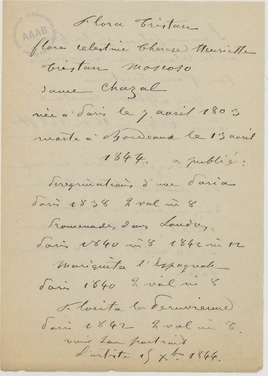 AAAB
Flora Tristan
flora celestine Therese Henriette
Tristan Moscoso
dame Chazal
née à Paris le 7 avril 1803
morte à Bordeaux le 13 avril
1844. a publié:
Peregrinations d'une Paria
Paris 1838 2 vol in 8
Promenades dans Londres
Paris 1840 in 8 1842 in 12
Mariquita l'Espagnole
Paris 1840 2 vol in 8
Florita la Peruvienne
Paris 1842 2 vol in 8.
voir son portrait
L'artiste 15 Xbre 1844.